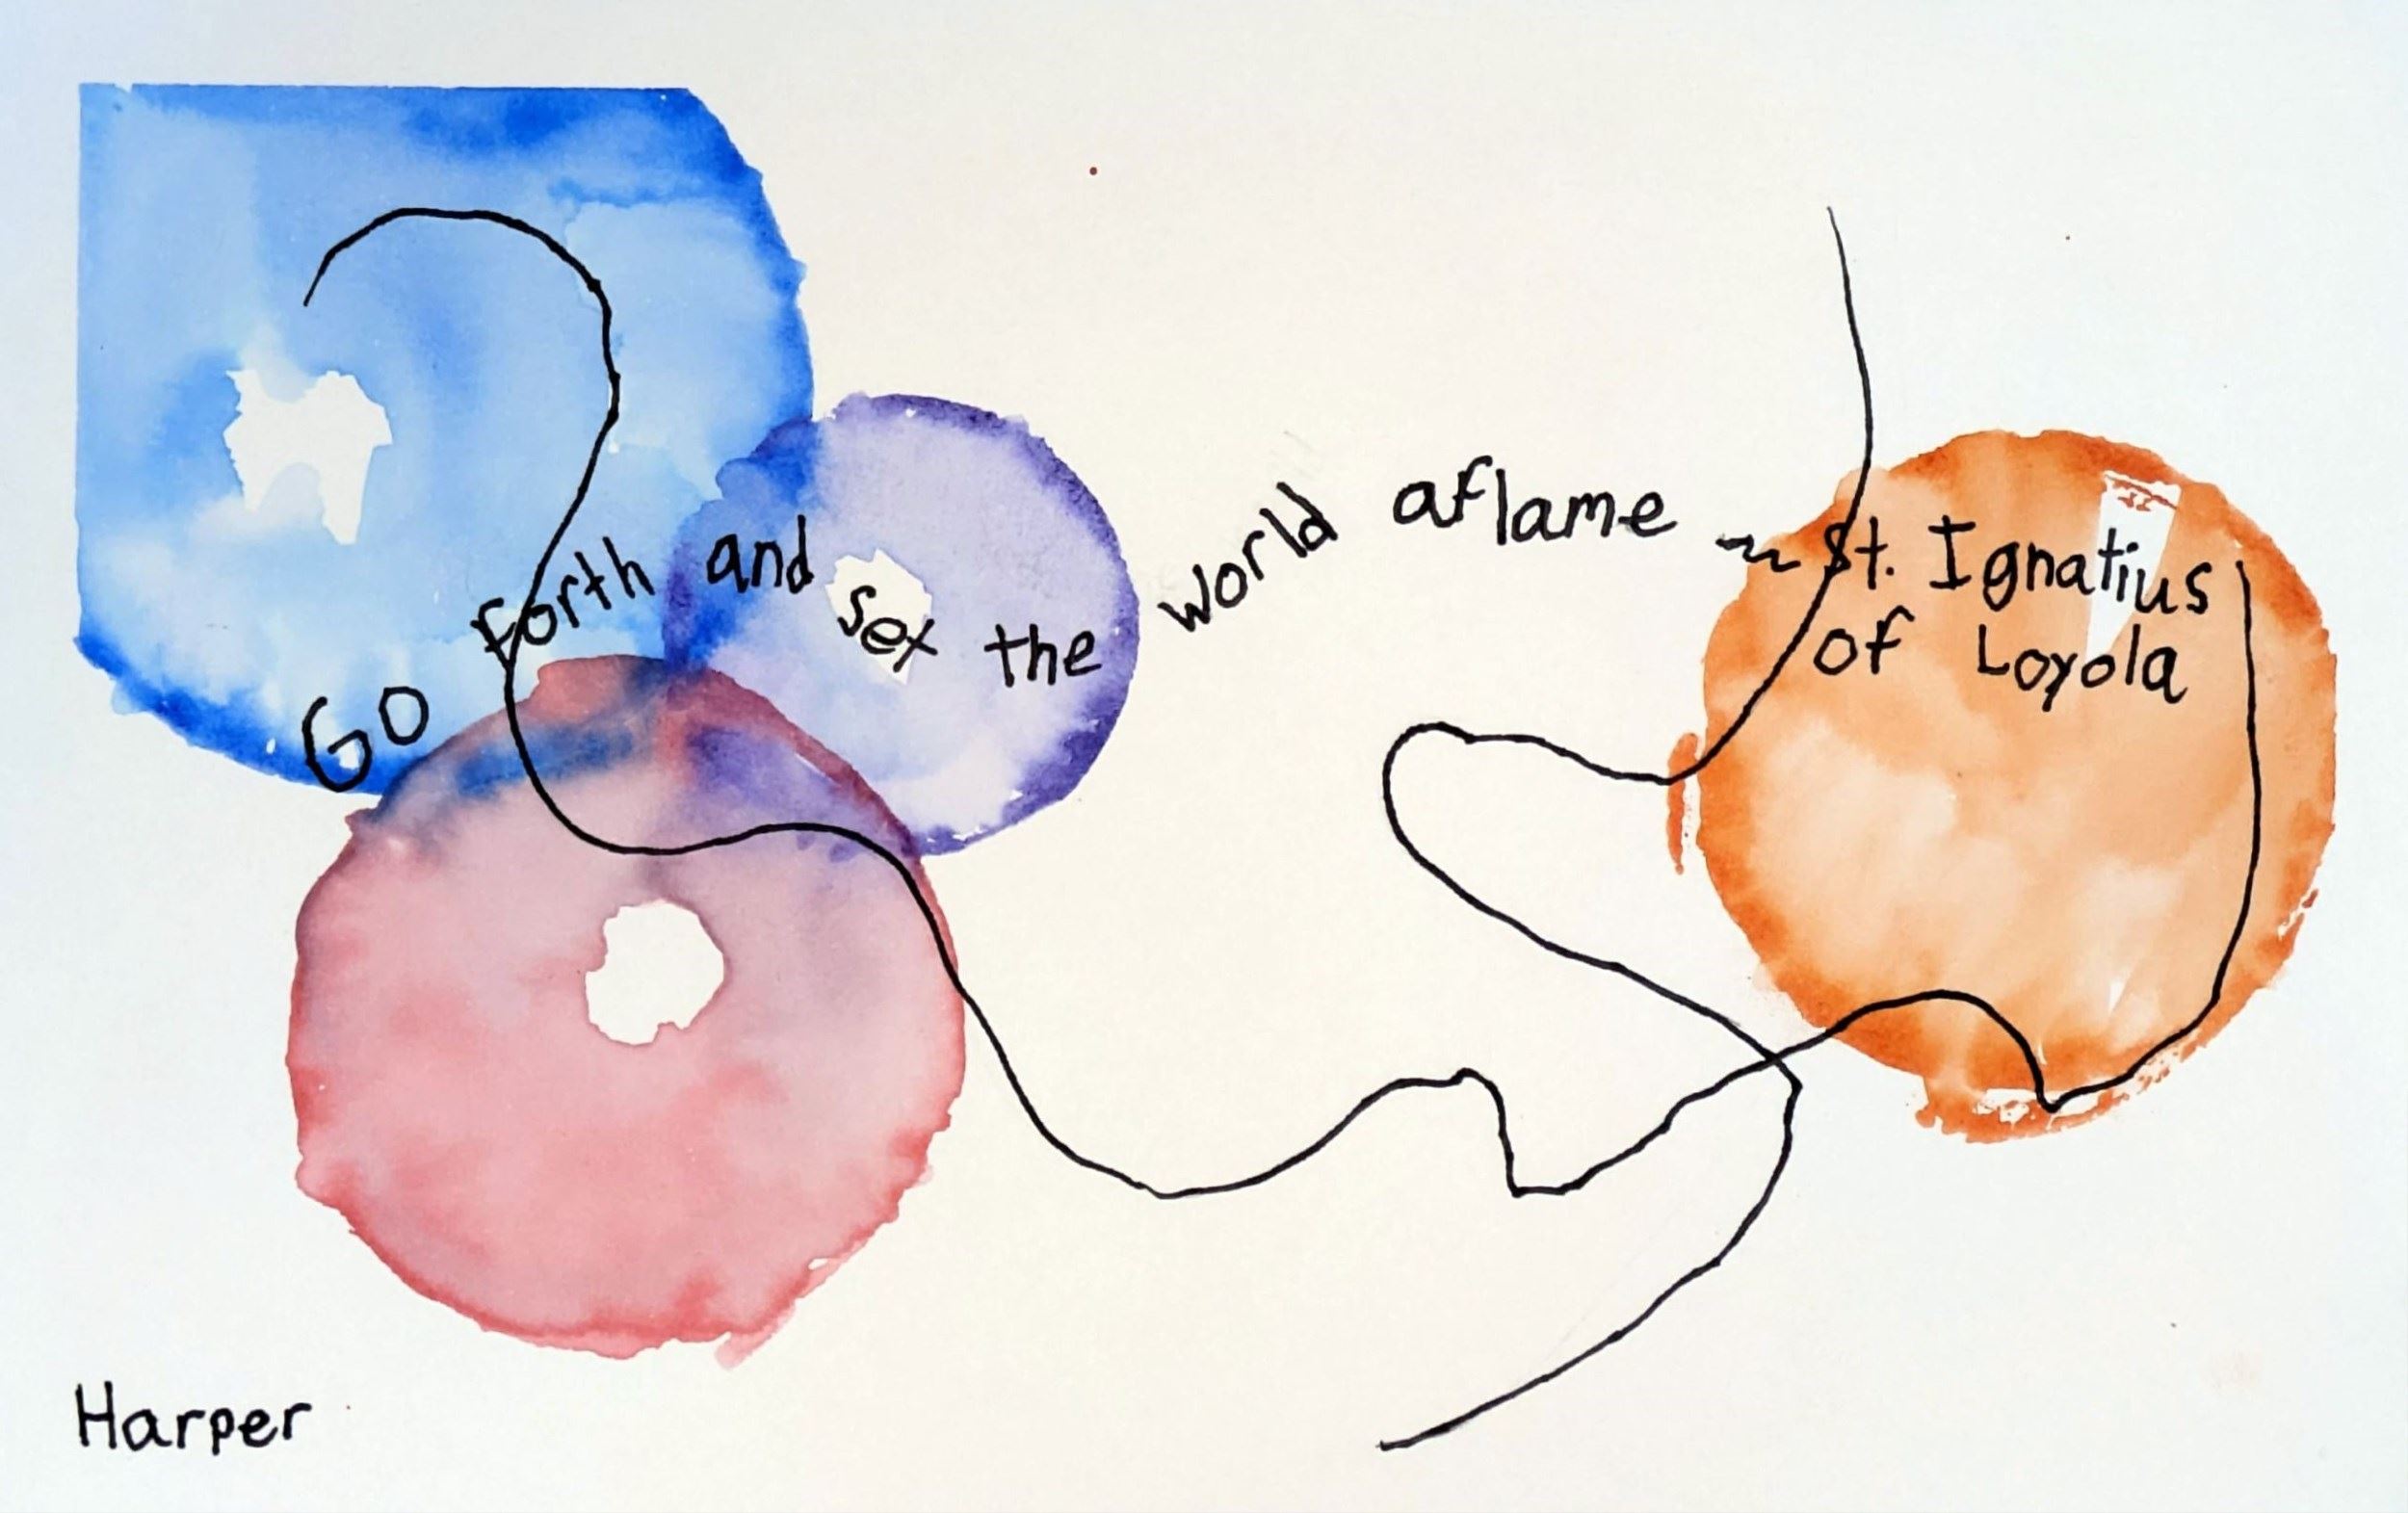 Go forth and set the world aflame ~ St. Ignatius
of Loyola
Harper